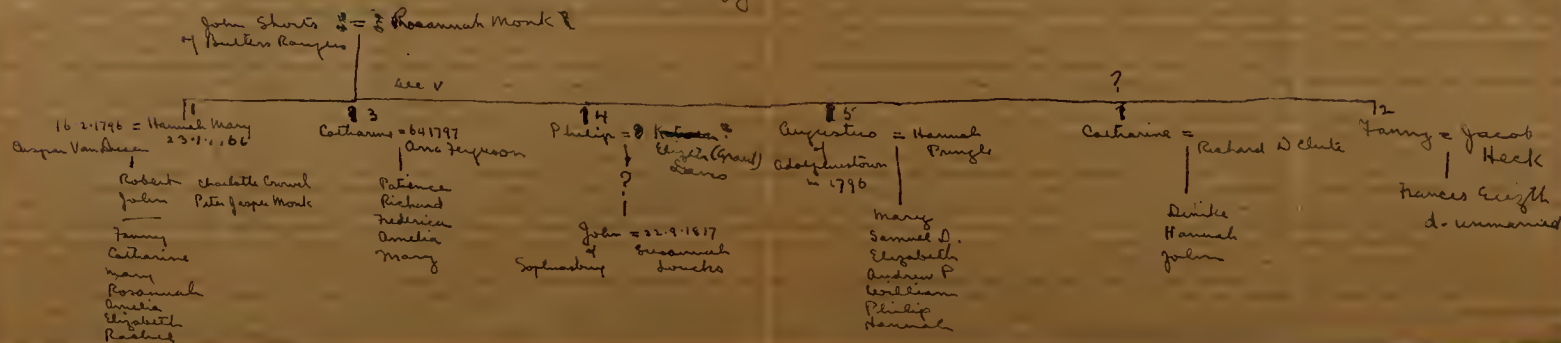 John Shorts = Rosannah Monk ?
of Butlers Rangers
see V
?
1
16.2.1796 = Hannah Mary
23.1., 66
Van Dusen
Robert Charlotte Crowel
John Peter Jasper Monk
Fanny
Catharine
Mary
Rosannah
Amelia
Elizabeth
Rachel
3
Catharine = 1797
Ferguson
Patience
Richard
Frederick
Amelia
Mary
4
Philip = ?
Elizth (Grant)
Davis
?
John = 22.9.1817
of Susannah
Sophiasburg Loucks
5
Augustus = Hannah
of Pringle
Adolphustown
in 1796
Mary
Samuel D.
Elizabeth
Andrew P
William
Philip
Hannah
Catharine =
Richard D Clute
Hannah
John
2
Fanny = Jacob
Heck
Frances Elizth
d. unmarried